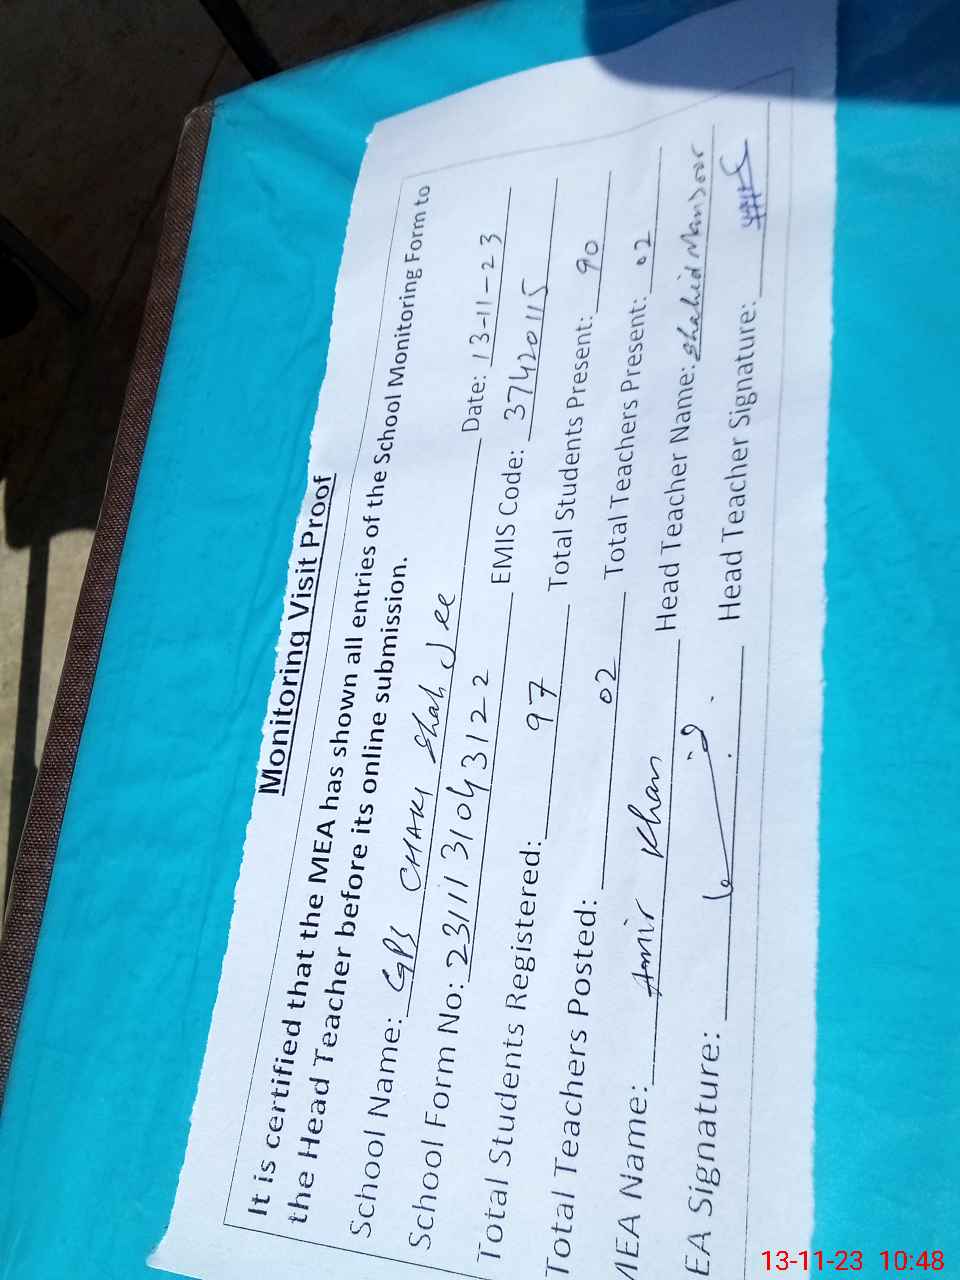 Monitoring Visit Proof
It is certified that the MEA has shown all entries of the School Monitoring Form to
the Head Teacher before its online submission.
School Name: GPS CHAKI Shah Jee Date: 13-11-23
School Form No: 2311131043122 EMIS Code: 37420115
Total Students Registered: 97 Total Students Present: 90
Total Teachers Posted: 02 Total Teachers Present: 02
MEA Name: Amir Khan Head Teacher Name: Shahid Mansoor
EA Signature: Head Teacher Signature:
13-11-23 10:48